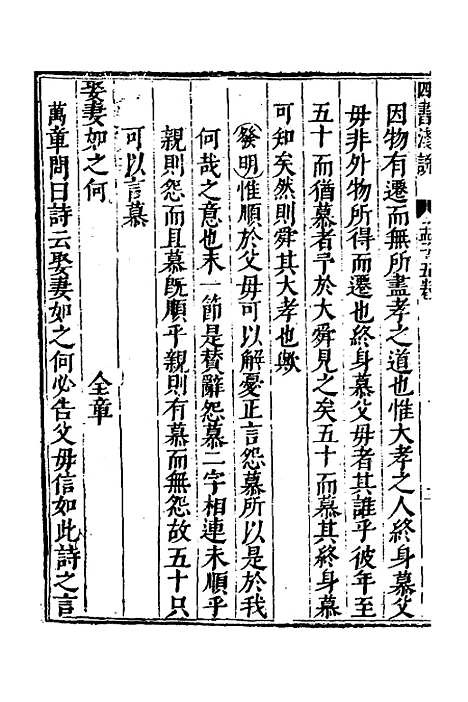 四書淺說
因物有遷而無所盡孝之道也惟大孝之人終身慕父
毋非外物所得而遷也終身慕父毋者其誰乎彼年至
五十而猶慕者予於大舜見之矣五十而慕其終身慕
可知矣然則舜其大孝也歟
發明惟順於父毋可以解憂正言怨慕所以是於我
何哉之意也末一節是賛辭怨慕二字相連未順乎
親則怨而且慕旣順乎親則有慕而無怨故五十只
可以言慕
娶妻如之何　全章
萬章問曰詩云娶妻如之何必告父毋信如此詩之言